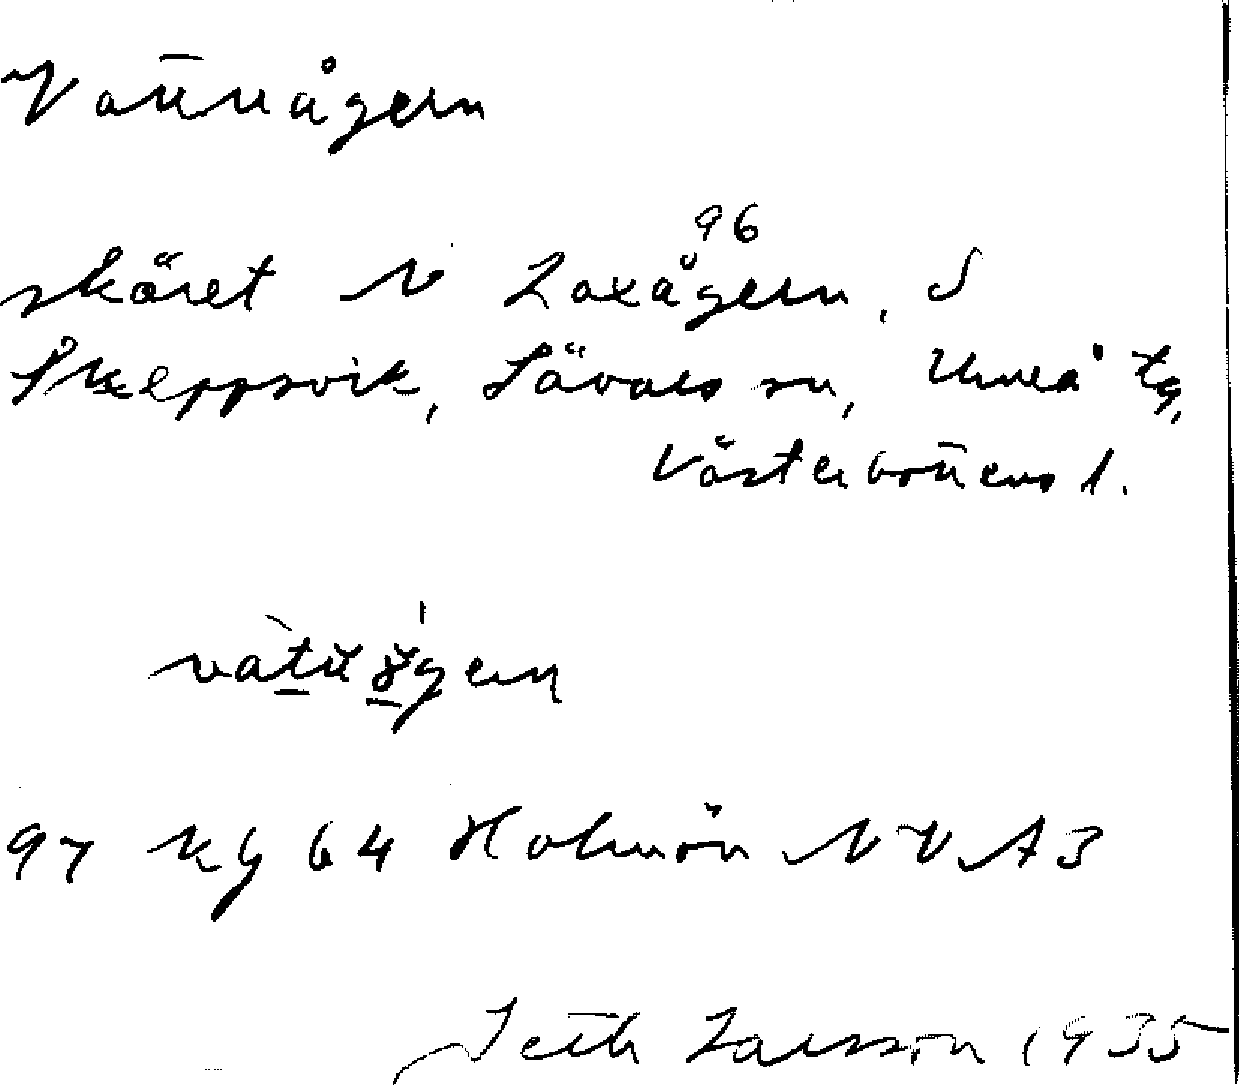 Vattuågern
96
skäret N Laxågern, S
Skeppsvik, Sävars sn, Umeå tg,
Västerbottens l.
97 Kg 64 Holmön NV A3
Seth Larsson 1935